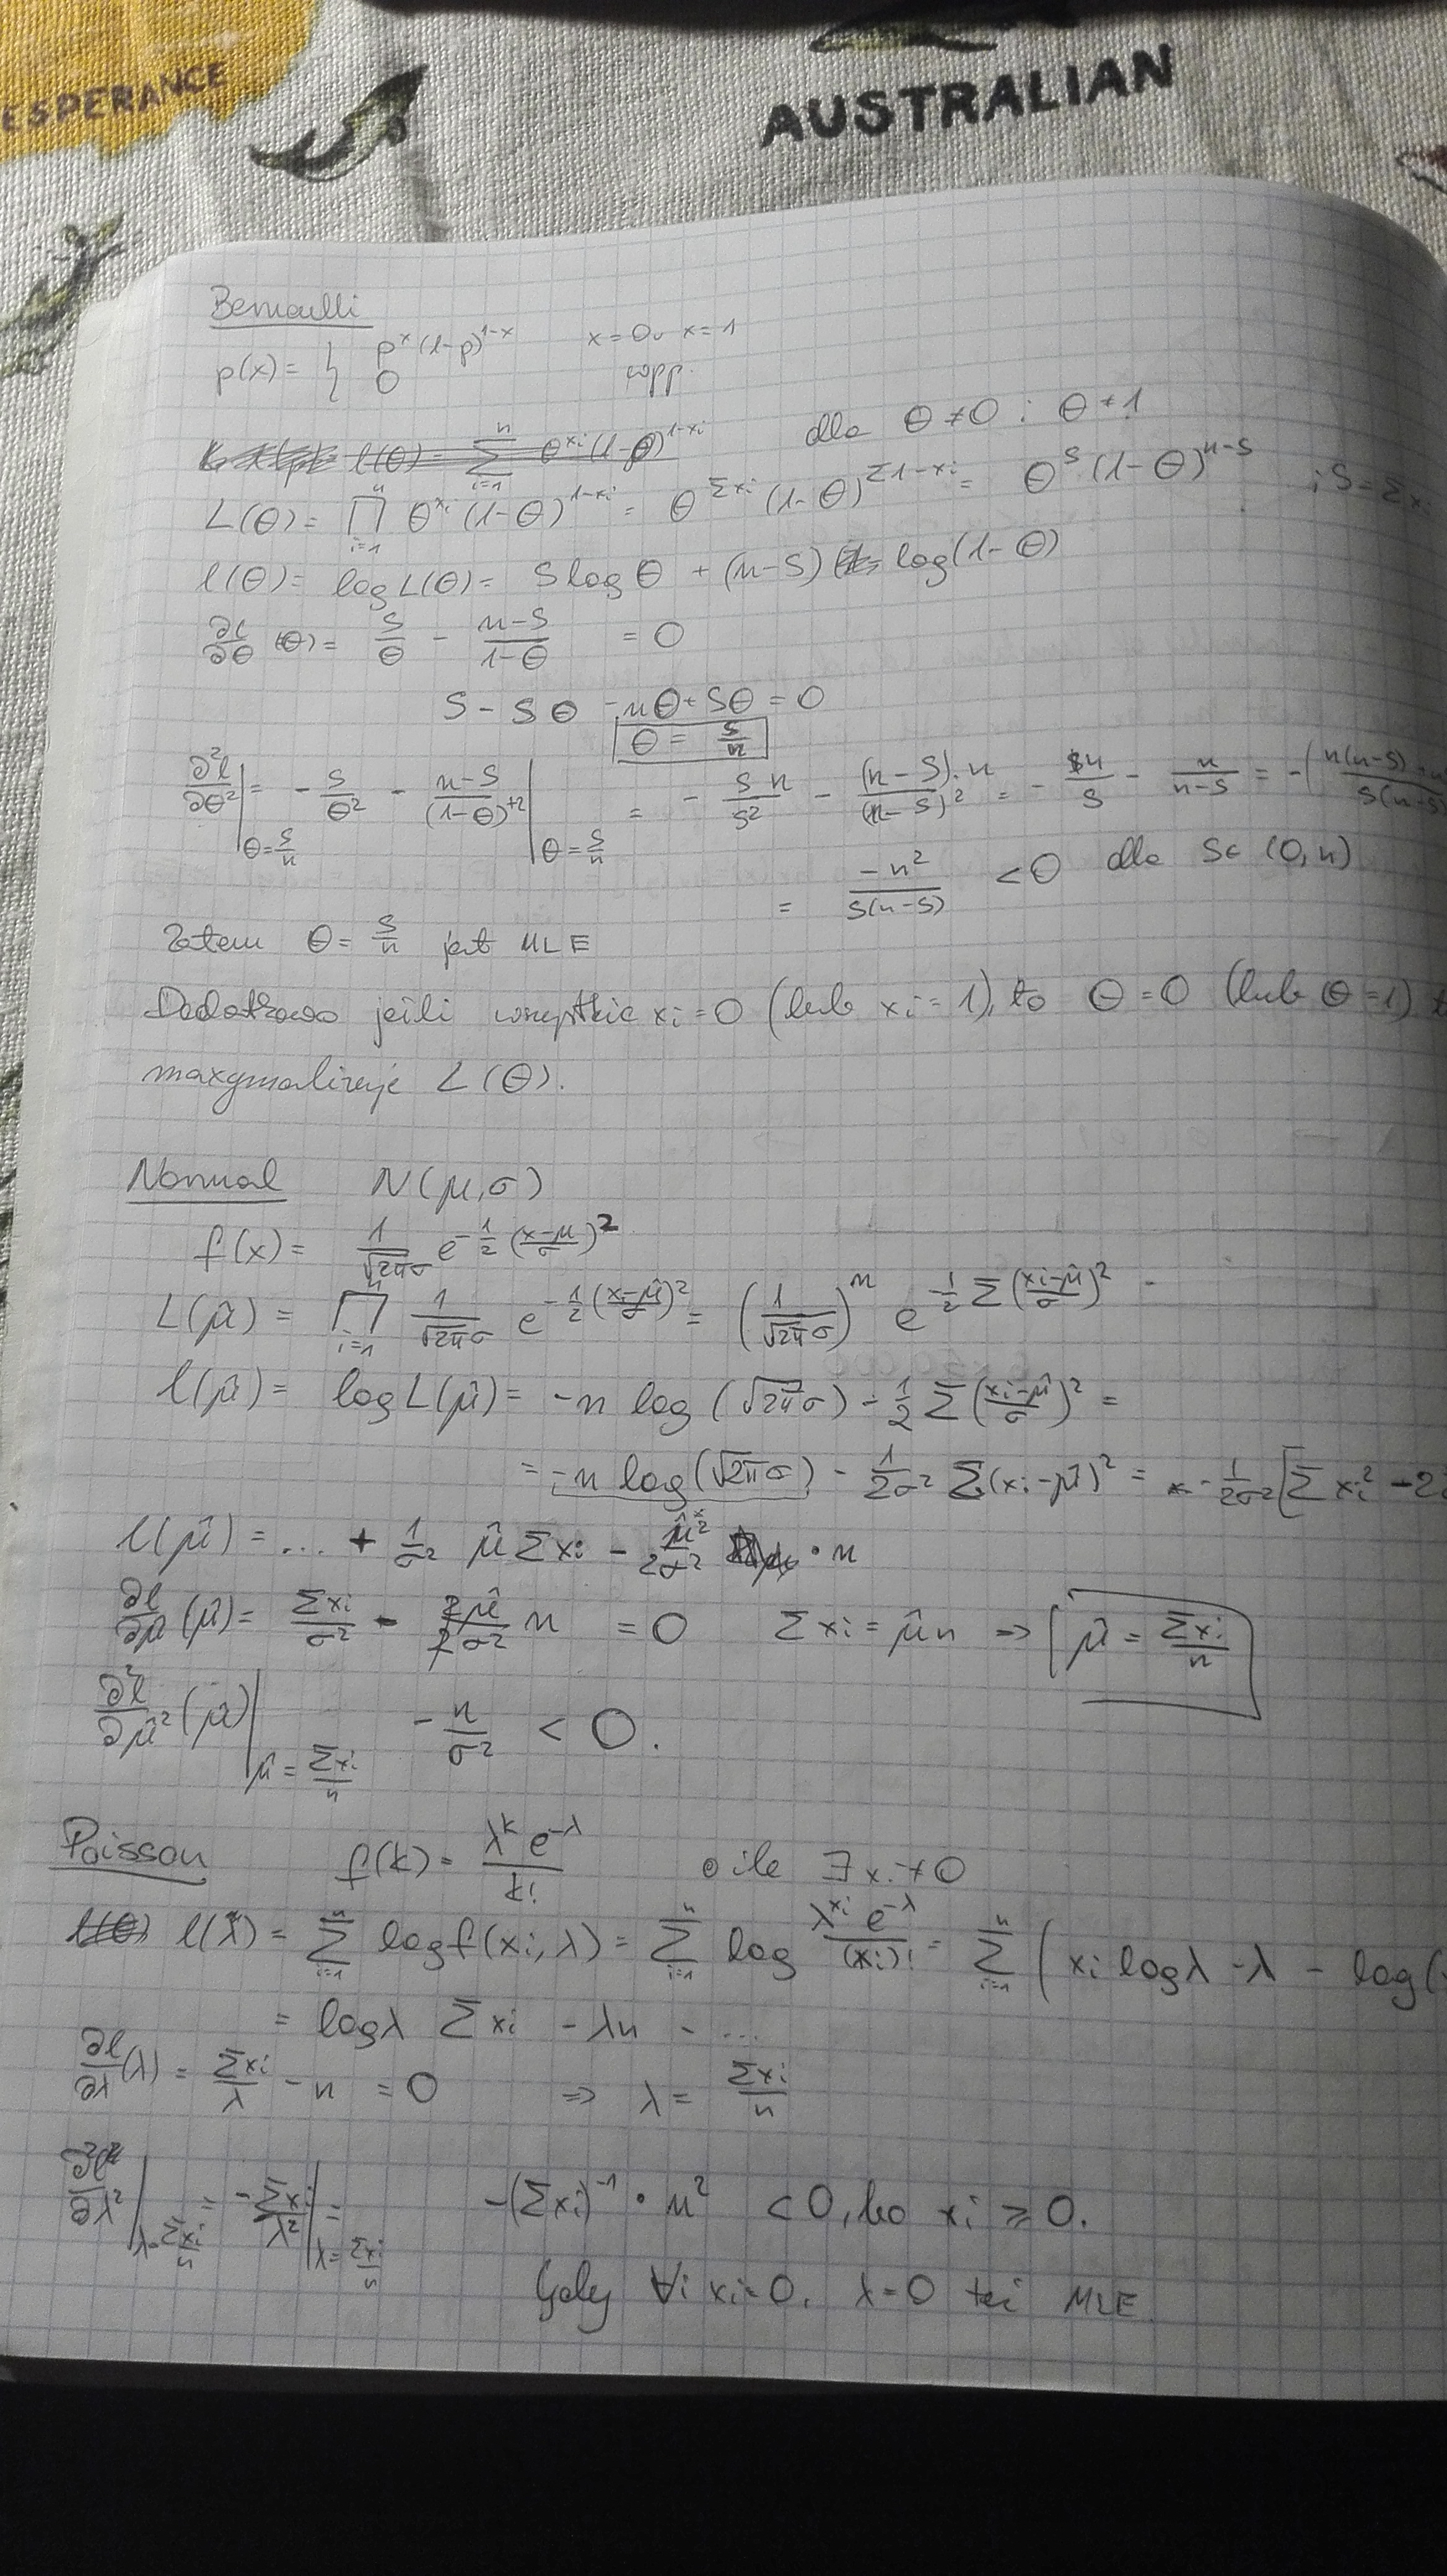 ESPERANCE
AUSTRALIAN
Bernoulli
p(x) = { p^x (1-p)^{1-x} x=0 ∨ x=1
0 wpp.
l(θ) = Σ_{i=1}^{n} θ^{xi} (1-θ)^{1-xi} dla θ≠0 i θ≠1
L(θ) = ∏_{i=1}^{n} θ^{xi} (1-θ)^{1-xi} = θ^{Σxi} (1-θ)^{Σ1-xi} = θ^S (1-θ)^{n-S} ; S=Σxi
l(θ) = log L(θ) = S log θ + (n-S) log(1-θ)
∂l/∂θ (θ) = S/θ - (n-S)/(1-θ) = 0
S - Sθ - nθ + Sθ = 0
θ = S/n
∂²l/∂θ² |_{θ=S/n} = - S/θ² - (n-S)/(1-θ)^{+2} |_{θ=S/n} = - S n/S² - (n-S)·n/(n-S)² = - n/S - n/(n-S) = -( n(n-S) + n
S(n-S)
= -n²/(S(n-S)) < 0 dla S∈(0,n)
Zatem θ = S/n jest MLE
Dodatkowo jeśli wszystkie xi=0 (lub xi=1), to θ=0 (lub θ=1)
maxymalizuje L(θ).
Normal N(μ,σ)
f(x) = 1/(√2π σ) e^{-1/2 ((x-μ)/σ)²}
L(μ̂) = ∏_{i=1}^{n} 1/(√2π σ) e^{-1/2 ((xi-μ̂)/σ)²} = (1/(√2π σ))^n e^{-1/2 Σ((xi-μ̂)/σ)²}
l(μ̂) = log L(μ̂) = -n log(√2π σ) - 1/2 Σ((xi-μ̂)/σ)² =
= -n log(√2π σ) - 1/2σ² Σ(xi-μ̂)² = * - 1/2σ² [Σxi² - 2
l(μ̂) = ... + 1/σ² μ̂ Σxi - μ̂²/2σ² · n
∂l/∂μ̂ (μ̂) = Σxi/σ² - 2μ̂/2σ² n = 0 Σxi = μ̂n => μ̂ = Σxi/n
∂²l/∂μ̂² (μ̂) |_{μ̂ = Σxi/n} - n/σ² < 0.
Poisson f(k) = λ^k e^{-λ}/k! o ile ∃xi≠0
l(θ) l(λ) = Σ_{i=1}^{n} log f(xi,λ) = Σ_{i=1}^{n} log λ^{xi} e^{-λ}/(xi)! = Σ_{i=1}^{n} ( xi log λ - λ - log(
= log λ Σxi - λn - ...
∂l/∂λ (λ) = Σxi/λ - n = 0 => λ = Σxi/n
∂²l/∂λ² |_{λ=Σxi/n} = - Σxi/λ² |_{λ=Σxi/n} = -(Σxi)^{-1} · n² < 0, bo xi ≥ 0.
Gdy ∀i xi=0, λ=0 też MLE